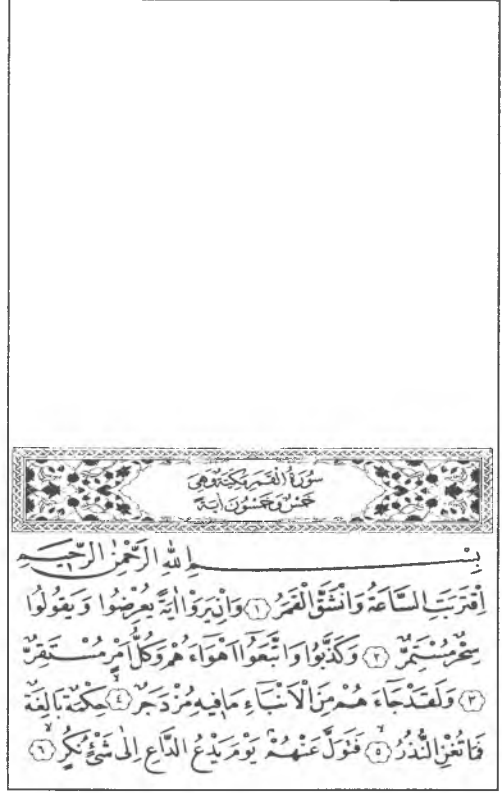 سُورَةُ الْقَمَرِ مَكِّيَّةٌ وَهِيَ
خَمْسٌ وَخَمْسُونَ اٰيَةً
بِسْمِ اللّٰهِ الرَّحْمٰنِ الرَّحٖيمِ
اِقْتَرَبَتِ السَّاعَةُ وَانْشَقَّ الْقَمَرُ ﴿١﴾ وَاِنْ يَرَوْا اٰيَةً يُعْرِضُوا وَيَقُولُوا
سِحْرٌ مُسْتَمِرٌّ ﴿٢﴾ وَكَذَّبُوا وَاتَّبَعُٓوا اَهْوَٓاءَهُمْ وَكُلُّ اَمْرٍ مُسْتَقِرٌّ
﴿٣﴾ وَلَقَدْ جَٓاءَهُمْ مِنَ الْاَنْبَٓاءِ مَا فٖيهِ مُزْدَجَرٌۙ ﴿٤﴾ حِكْمَةٌ بَالِغَةٌ
فَمَا تُغْنِ النُّذُرُۙ ﴿٥﴾ فَتَوَلَّ عَنْهُمْۢ يَوْمَ يَدْعُ الدَّاعِ اِلٰى شَيْءٍ نُكُرٍۙ ﴿٦﴾